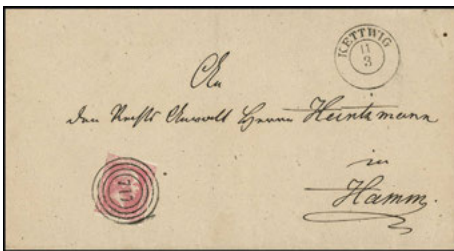 KETTWIG
11
3
An
den Rechts Anwalt Herrn Heintzmann
in
Hamm.
710